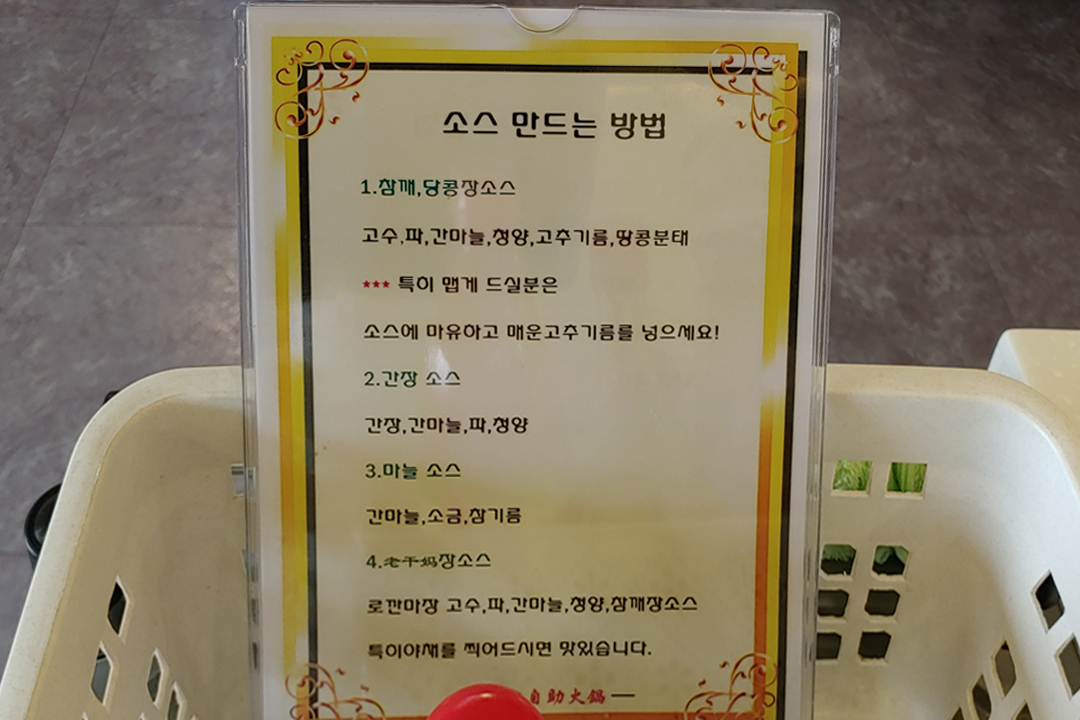 소스 만드는 방법
1.참깨,당콩장소스
고수,파,간마늘,청양,고추기름,땅콩분태
*** 특히 맵게 드실분은
소스에 마유하고 매운고추기름를 넣으세요!
2.간장 소스
간장,간마늘,파,청양
3.마늘 소스
간마늘,소금,참기름
4.老干妈장소스
로깐마장 고수,파,간마늘,청양,참깨장소스
특히야채를 찍어드시면 맛있습니다.
自助火鍋一